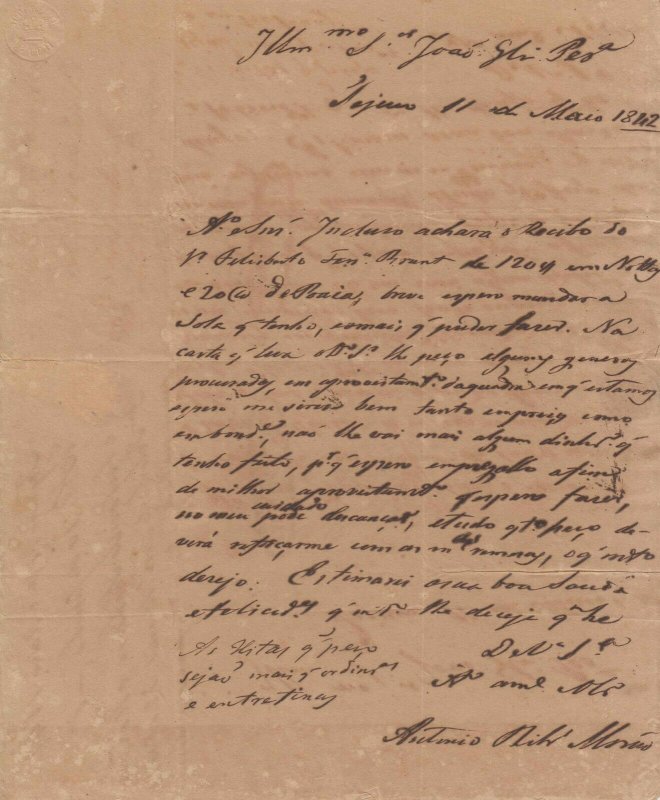 Illm.mo S.or João Glz Per.a
Tejuco 11 de Maio 1842
Am.o e Snr. Incluso achará o Recibo do
Felisberto Fern. Brant de em
e de Praia, breve espero mandar a
Sola q tenho, e o mais q puder fazer. Na
carta q leva o D.o S.r lhe peço alguns generos
procurados, em aproveitam.to da quadra em q estamos
espero me sirva bem tanto em preços como
em bond.e, não lhe vai mais algum dinhr.o q
tenho feito, p.r q espero empregallo afim
de milhor aproveitam.to q espero fazer,
no meu cuidado pode descançar, e tudo q.to peço de-
verá reforçarme com as m.as remeças, o q m.to
dezejo. Estimarei a sua boa Saude
e felicid.es q m.to lhe dezeja q.m he
As q peço
sejão mais q ordin.as
e entrefinas
De V.a S.a
Am.o
Antonio Ribr.o